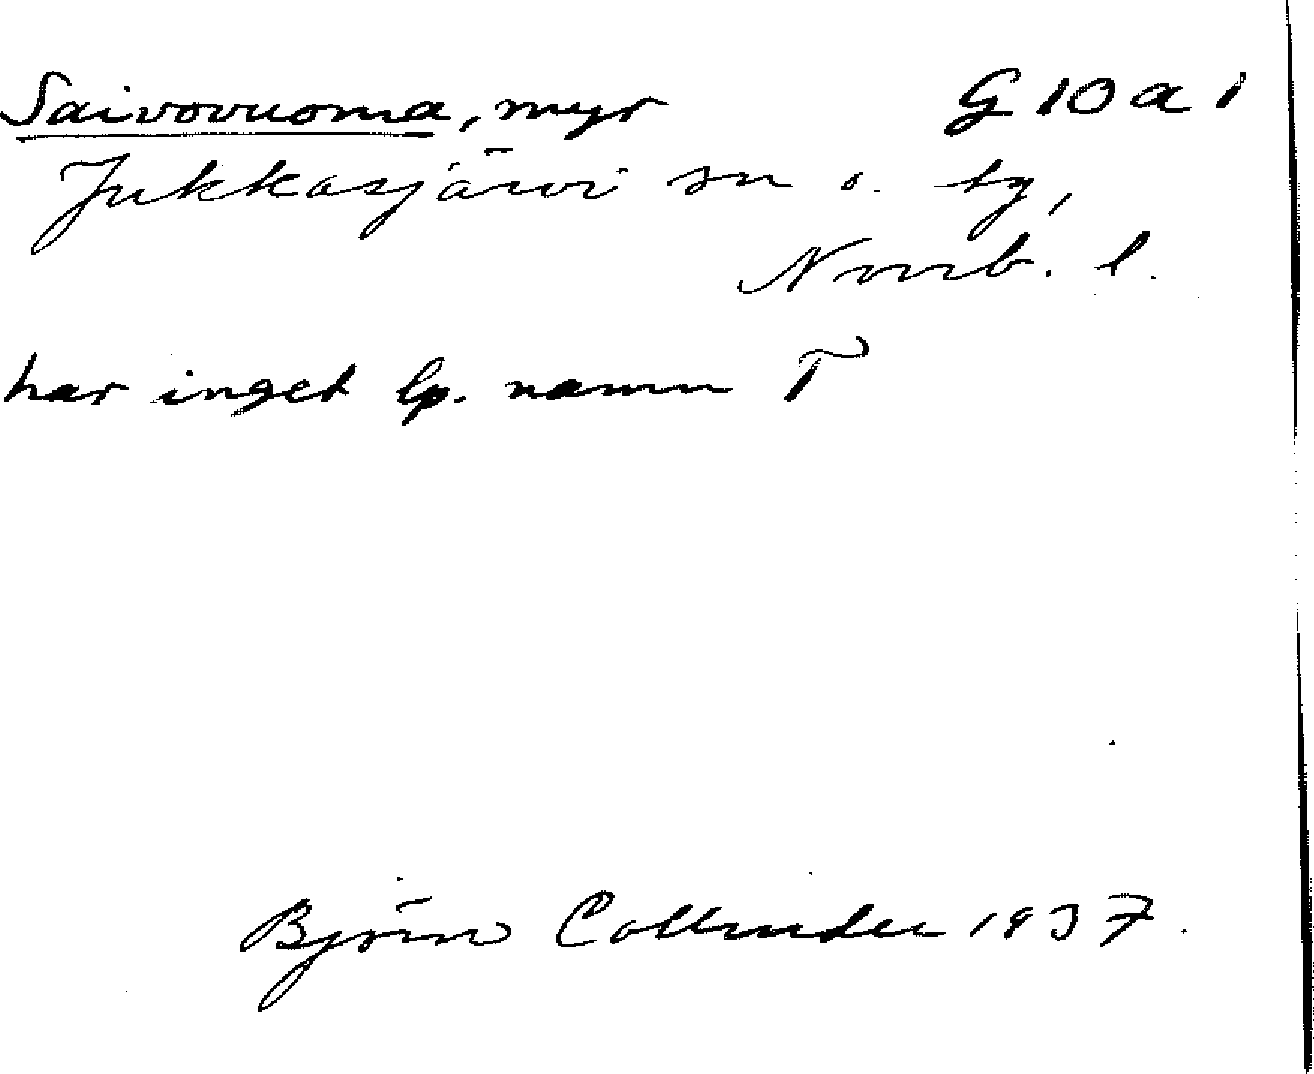 Saivovuoma, myr G 10 a 1
Jukkasjärvi sn o. by,
Norrb. l.
har inget lp. namn T
Björn Collinder 1937.